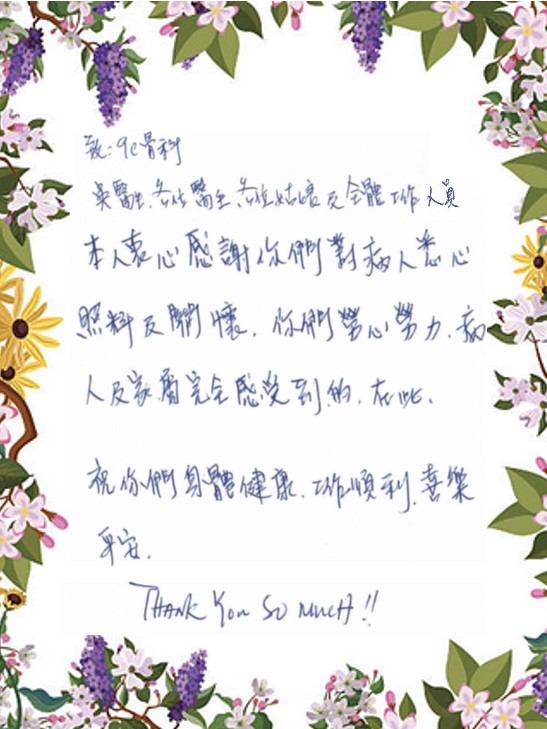 致：9C骨科
吳醫生、各位醫生、各位姑娘及全體工作人員
本人衷心感謝你們對病人悉心
照料及關懷，你們勞心勞力，病
人及家屬完全感受到的，在此，
祝你們身體健康，工作順利，喜樂
平安．
THANK YOU SO MUCH!!